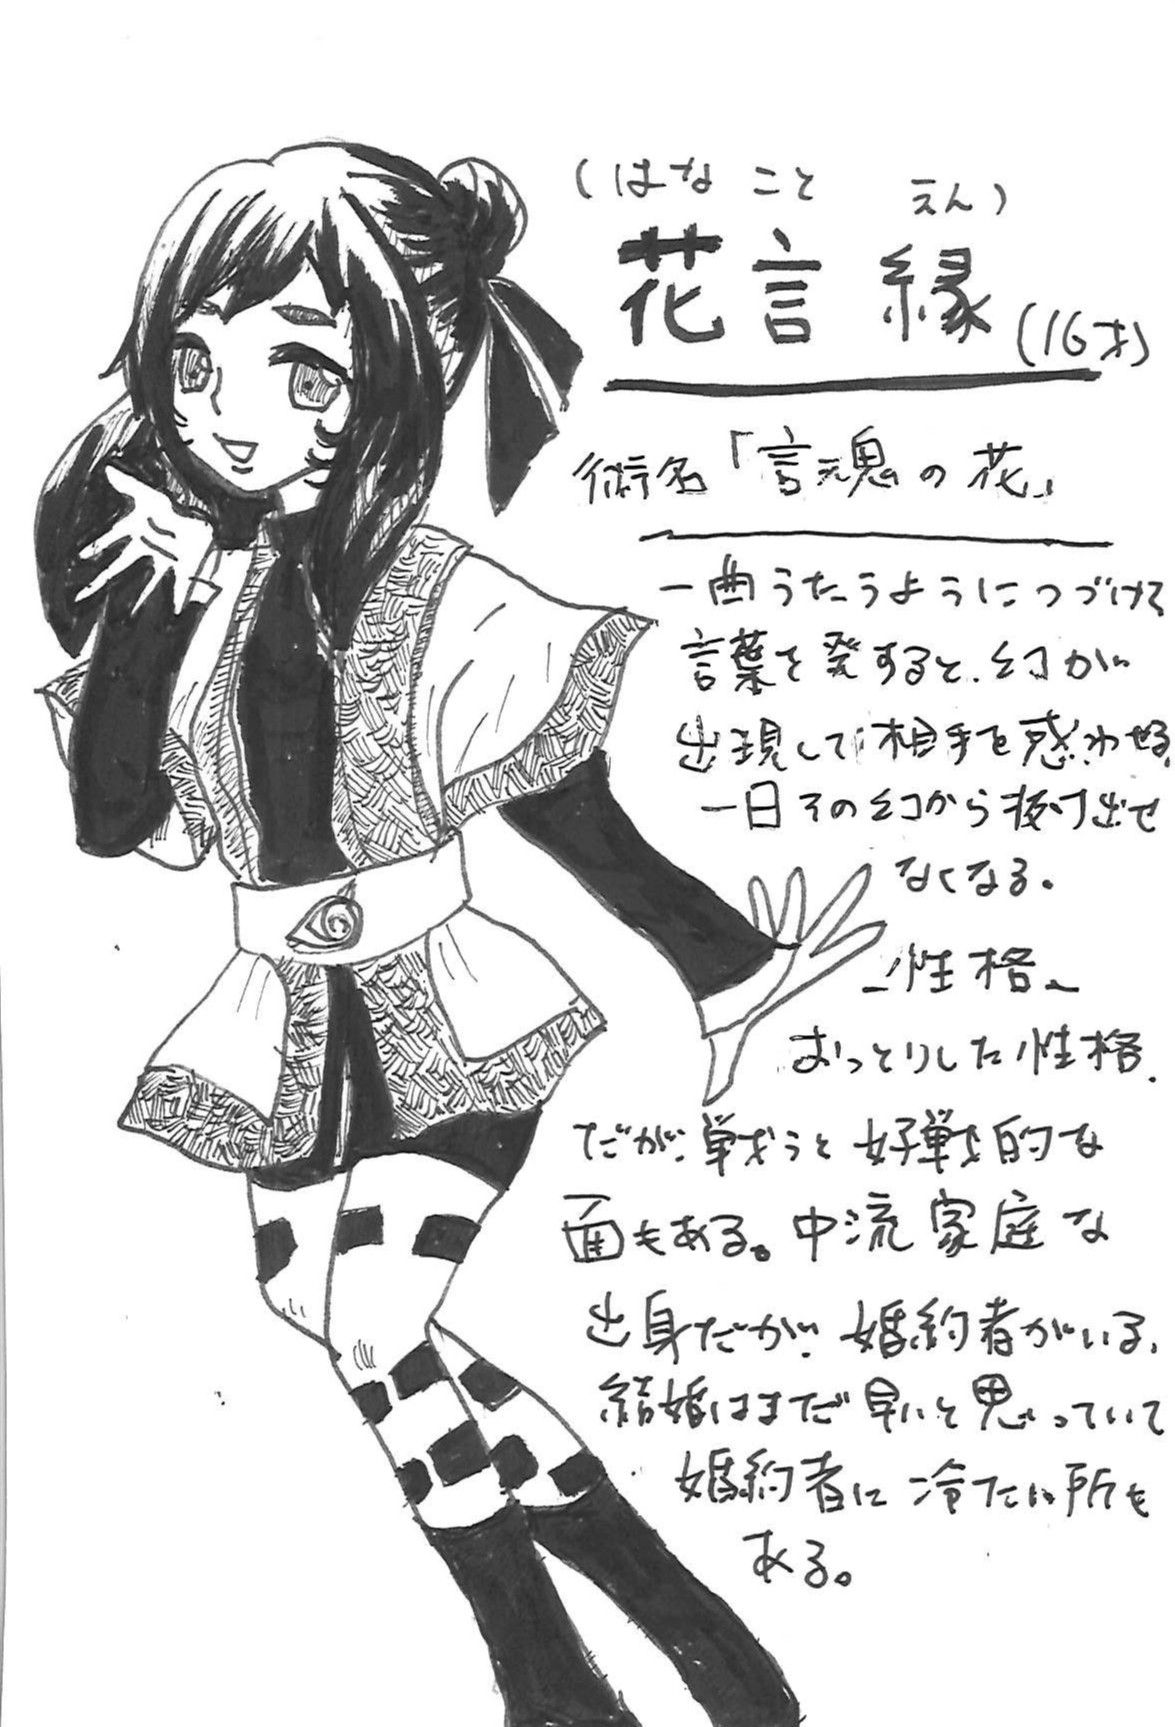 (はなこと えん)
花言 縁 (16才)
術名「言魂の花」
一曲うたうようにつづけて
言葉を発すると、幻が
出現して相手を惑わせる、
一日その幻から抜け出せ
なくなる。
-性格-
おっとりした性格。
だが、戦うと好戦的な
面もある。中流家庭な
出身だが、婚約者がいる、
結婚はまだ早いと思っていて
婚約者に冷たい所も
ある。